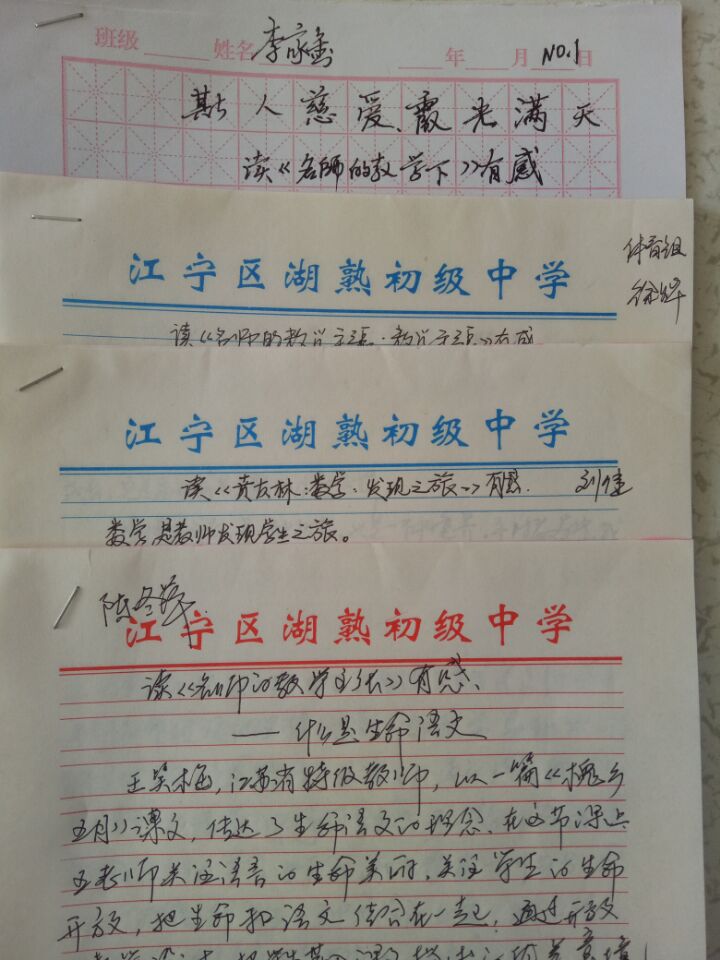 班级 姓名 李家 年 月 日 NO.1
斯人慈爱、霞光满天
读《名师的教学下》有感
江宁区湖熟初级中学
体育组
徐
读《名师的教学主张·教学主张》有感
江宁区湖熟初级中学
读《贲友林:数学·发现之旅》有感. 刘佳
数学是教师发现学生之旅。
陈冬萍
江宁区湖熟初级中学
读《名师的教学主张》有感、
——什么是生命语文
王笑梅,江苏省特级教师,以一篇《槐乡
五月》课文,传达了生命语文的理念、在这节课上
王老师关注语言的生命美时,关注学生的生命
开放,把生命和语文结合在一起,通过开放